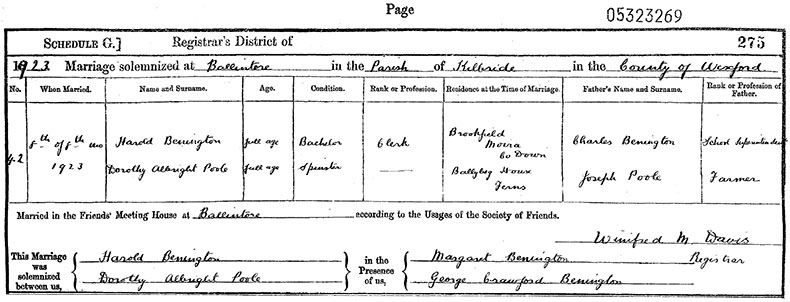 Page
05323269
SCHEDULE G.] Registrar's District of 275
1923 Marriage solemnized at Ballintore in the Parish of Kilbride in the County of Wexford
No. When Married. Name and Surname. Age. Condition. Rank or Profession. Residence at the Time of Marriage. Father's Name and Surname. Rank or Profession of Father.
42 8th of 8th mo 1923 Harold Benington full age Bachelor Clerk Brookfield Moira Co Down Charles Benington School Superintendent
Dorothy Albright Poole full age Spinster —— Ballybeg House Ferns Joseph Poole Farmer
Married in the Friends' Meeting House at Ballintore according to the Usages of the Society of Friends.
Winifred M. Davis
Registrar
This Marriage was solemnized between us, Harold Benington in the Presence of us, Margaret Benington
Dorothy Albright Poole George Crawford Benington